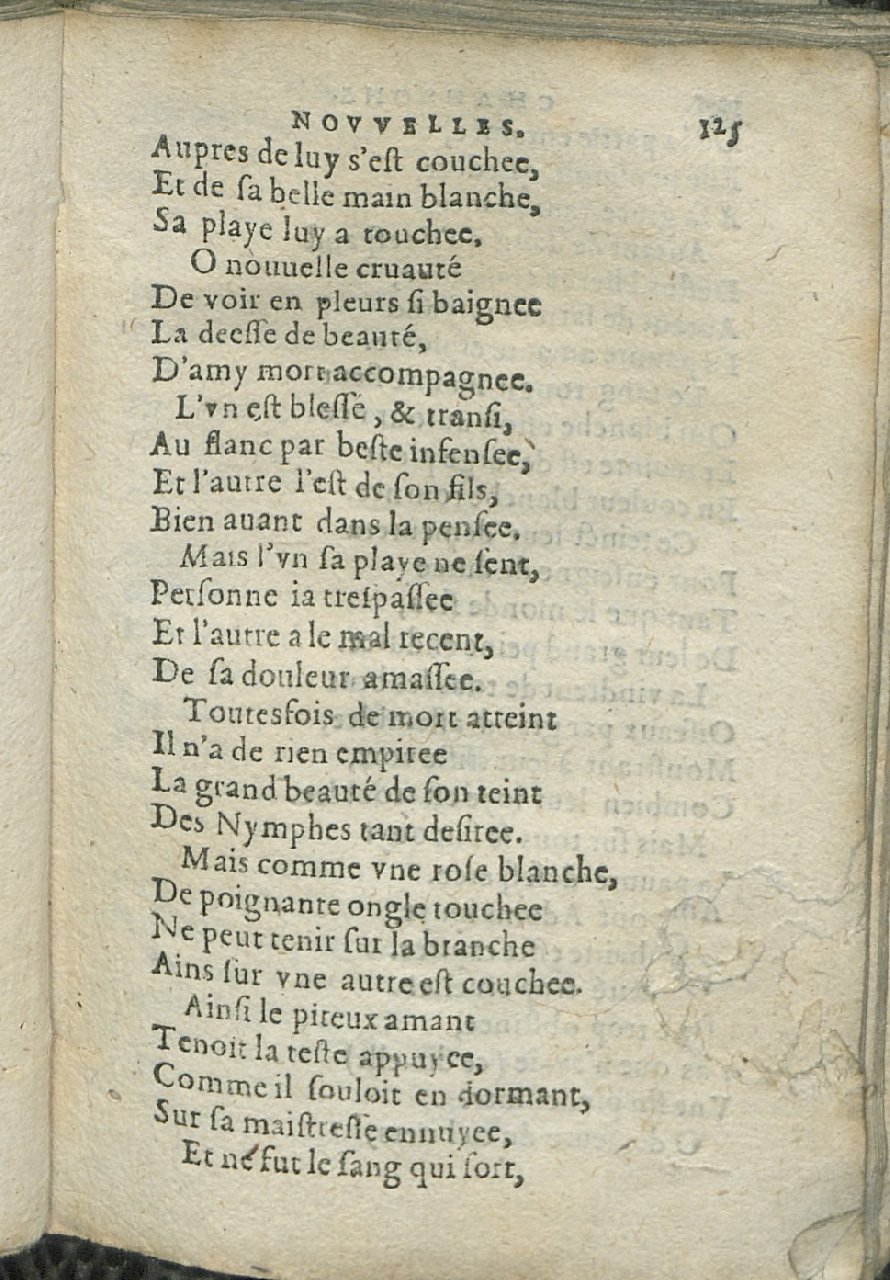 NOVVELLES. 125
Aupres de luy s'eſt couchee,
Et de ſa belle main blanche,
Sa playe luy a touchee.
O nouuelle cruauté
De voir en pleurs ſi baignee
La deeſſe de beauté,
D'amy mort accompagnee.
L'vn eſt bleſſé, & tranſi,
Au flanc par beſte inſenſee,
Et l'autre l'eſt de ſon fils,
Bien auant dans la penſee.
Mais l'vn ſa playe ne ſent,
Perſonne ia treſpaſſee
Et l'autre a le mal recent,
De ſa douleur amaſſee.
Toutesfois de mort atteint
Il n'a de rien empiree
La grand beauté de ſon teint
Des Nymphes tant deſiree.
Mais comme vne roſe blanche,
De poignante ongle touchee
Ne peut tenir ſur la branche
Ains ſur vne autre eſt couchee.
Ainſi le piteux amant
Tenoit la teſte appuyee,
Comme il ſouloit en dormant,
Sur ſa maiſtreſſe ennuyee,
Et né fut le ſang qui ſort,